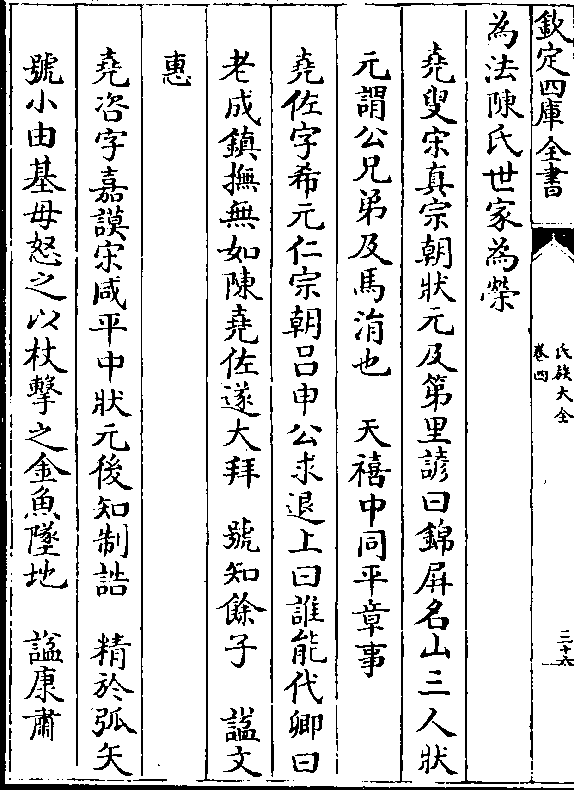 欽定四庫全書
氏族大全
卷四
三十六
為法陳氏世家為榮
堯叟宋真宗朝狀元及第里諺曰錦屏名山三人狀
元謂公兄弟及馬涓也　天禧中同平章事
堯佐字希元仁宗朝吕申公求退上曰誰能代卿曰
老成鎮撫無如陳堯佐遂大拜　號知餘子　諡文
惠
堯咨字嘉謨宋咸平中狀元後知制誥　精於弧矢
號小由基母怒之以杖擊之金魚墜地　諡康肅